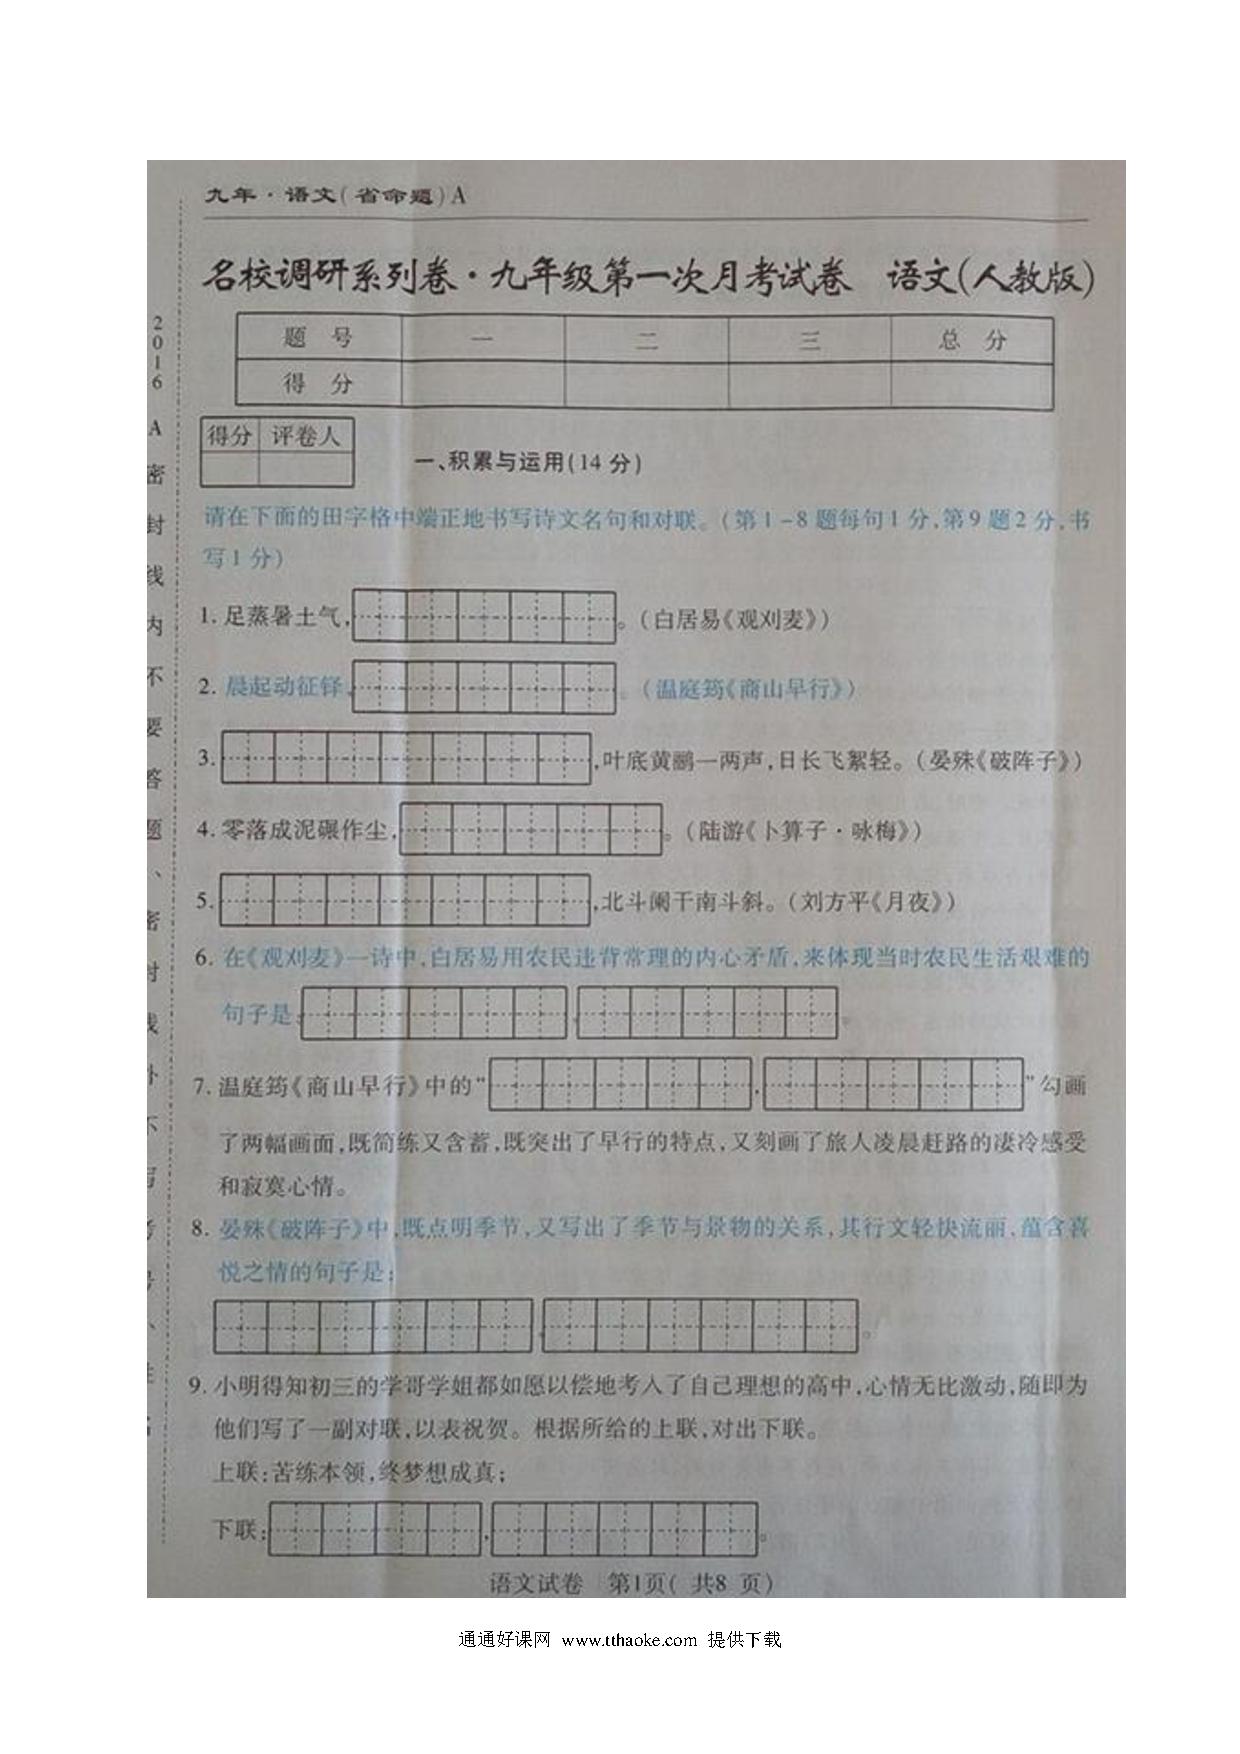 九年·语文(省命题)A
名校调研系列卷·九年级第一次月考试� 语文(人教版)
题 号 一 二 三 总 分
得 分
得分 评卷人
一、积累与运用(14 分)
请在下面的田字格中端正地书写诗文名句和对联。(第1-8题每句1分,第9题2分,书
写1分)
1. 足蒸暑土气, 。(白居易《观刈麦》)
2. 晨起动征铎, 。(温庭筠《商山早行》)
3. ,叶底黄鹂一两声,日长飞絮轻。(晏殊《破阵子》)
4. 零落成泥碾作尘, 。(陆游《卜算子·咏梅》)
5. ,北斗阑干南斗斜。(刘方平《月夜》)
6. 在《观刈麦》一诗中,白居易用农民违背常理的内心矛盾,来体现当时农民生活艰难的
句子是: , 。
7. 温庭筠《商山早行》中的“ , ”勾画
了两幅画面,既简练又含蓄,既突出了早行的特点,又刻画了旅人凌晨赶路的凄冷感受
和寂寞心情。
8. 晏殊《破阵子》中,既点明季节,又写出了季节与景物的关系,其行文轻快流丽,蕴含喜
悦之情的句子是:
, 。
9. 小明得知初三的学哥学姐都如愿以偿地考入了自己理想的高中,心情无比激动,随即为
他们写了一副对联,以表祝贺。根据所给的上联,对出下联。
上联:苦练本领,终梦想成真;
下联: , 。
语文试卷 第1页( 共8 页)
2016 A 密 封 线 内 不 要 答 题 、 密 封
通通好课网 www.tthaoke.com 提供下载